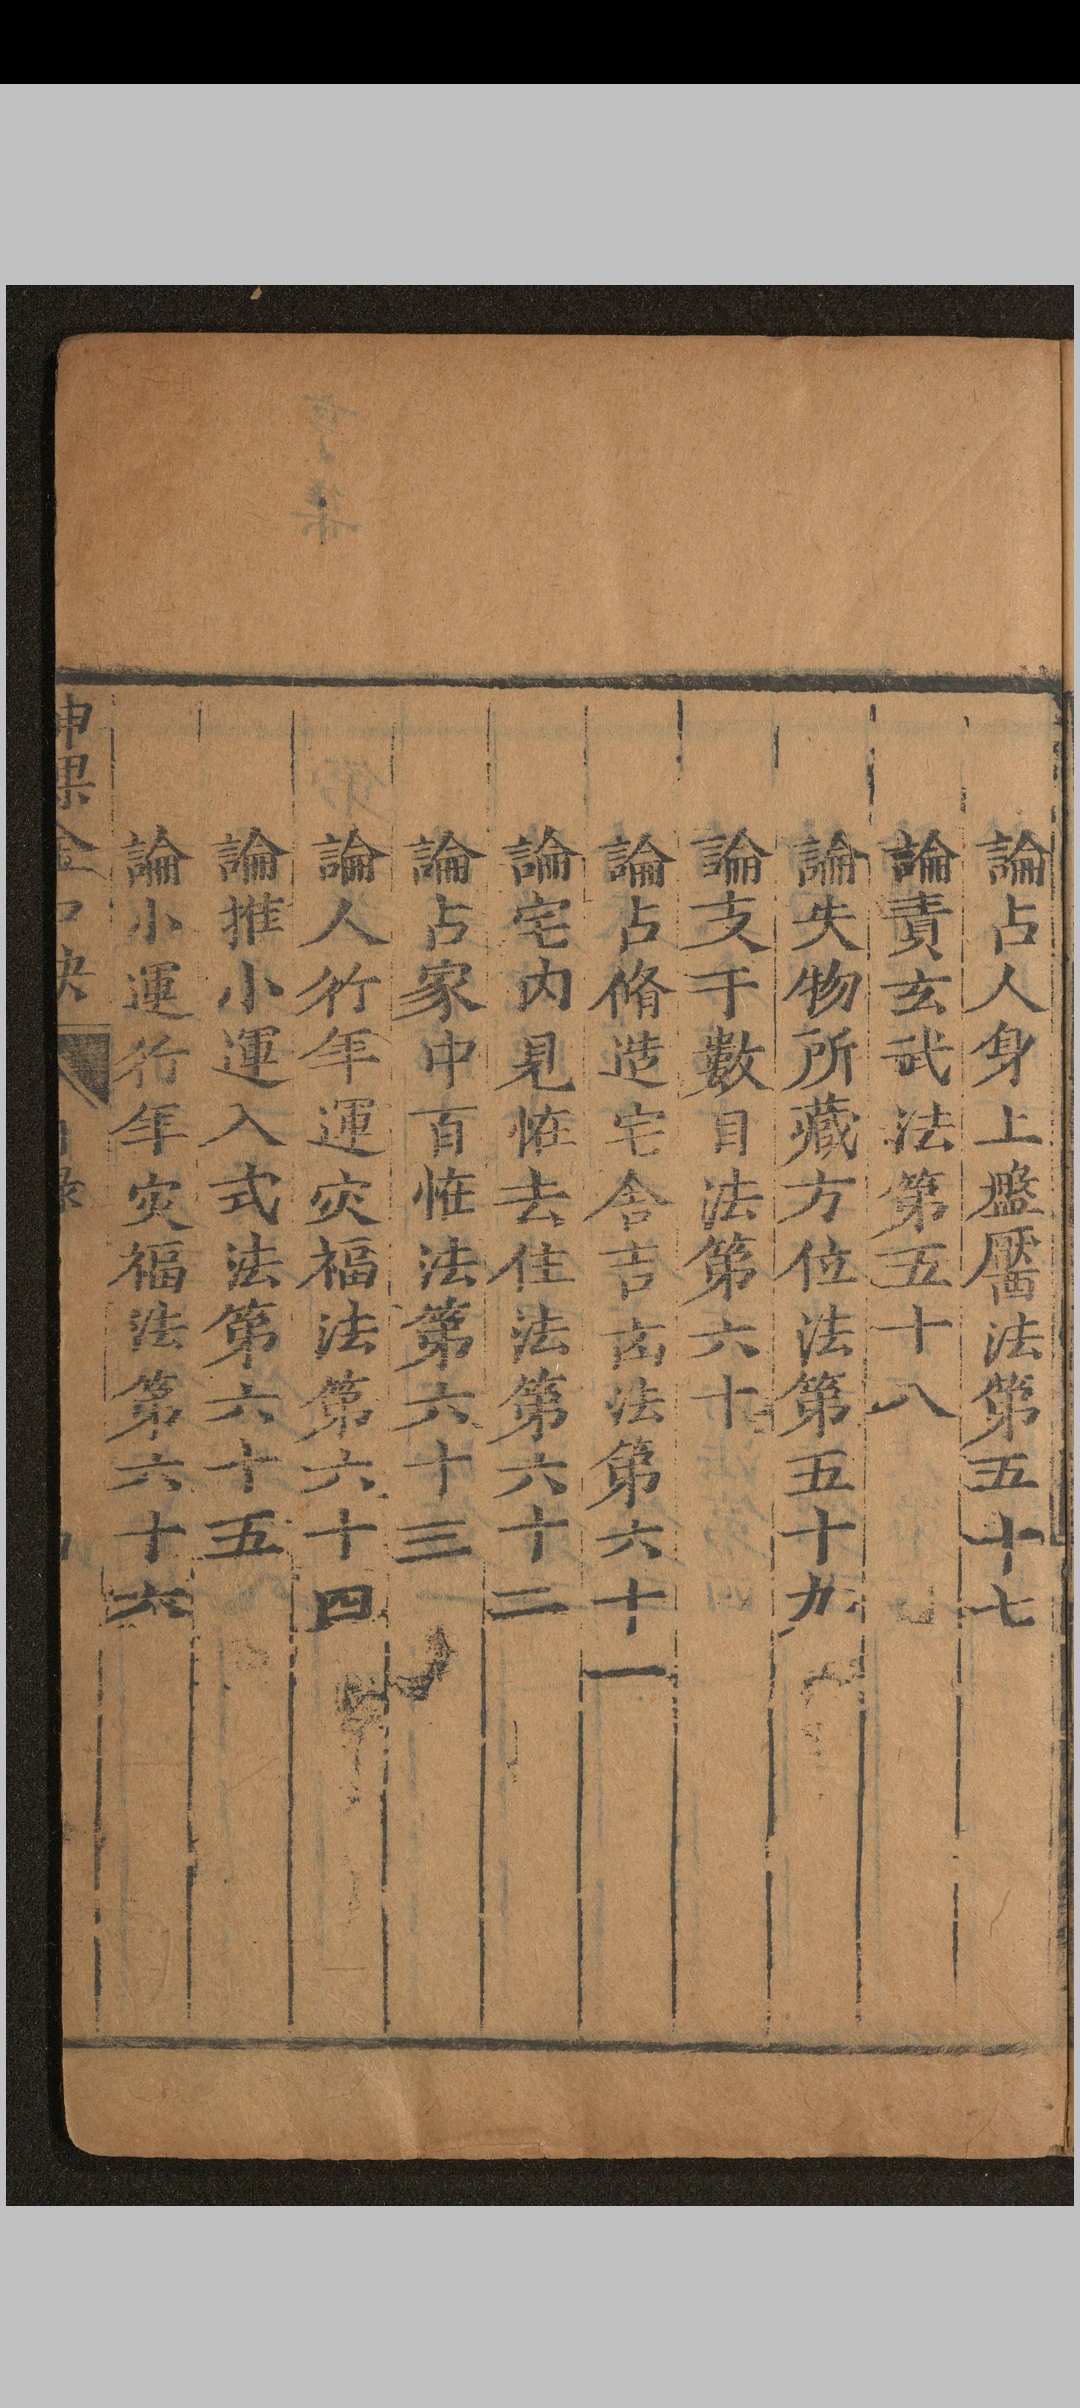 論占人身上盤靨法第五十七
論責玄武法第五十八
論失物所藏方位法第五十九
論支干數目法第六十
論占脩造宅舍吉㐫法第六十一
論宅内見恠去住法第六十二
論占家中百恠法第六十三
論人行年運灾福法第六十四
論推小運入式法第六十五
論小運行年灾福法第六十六
神課金口訣 目錄